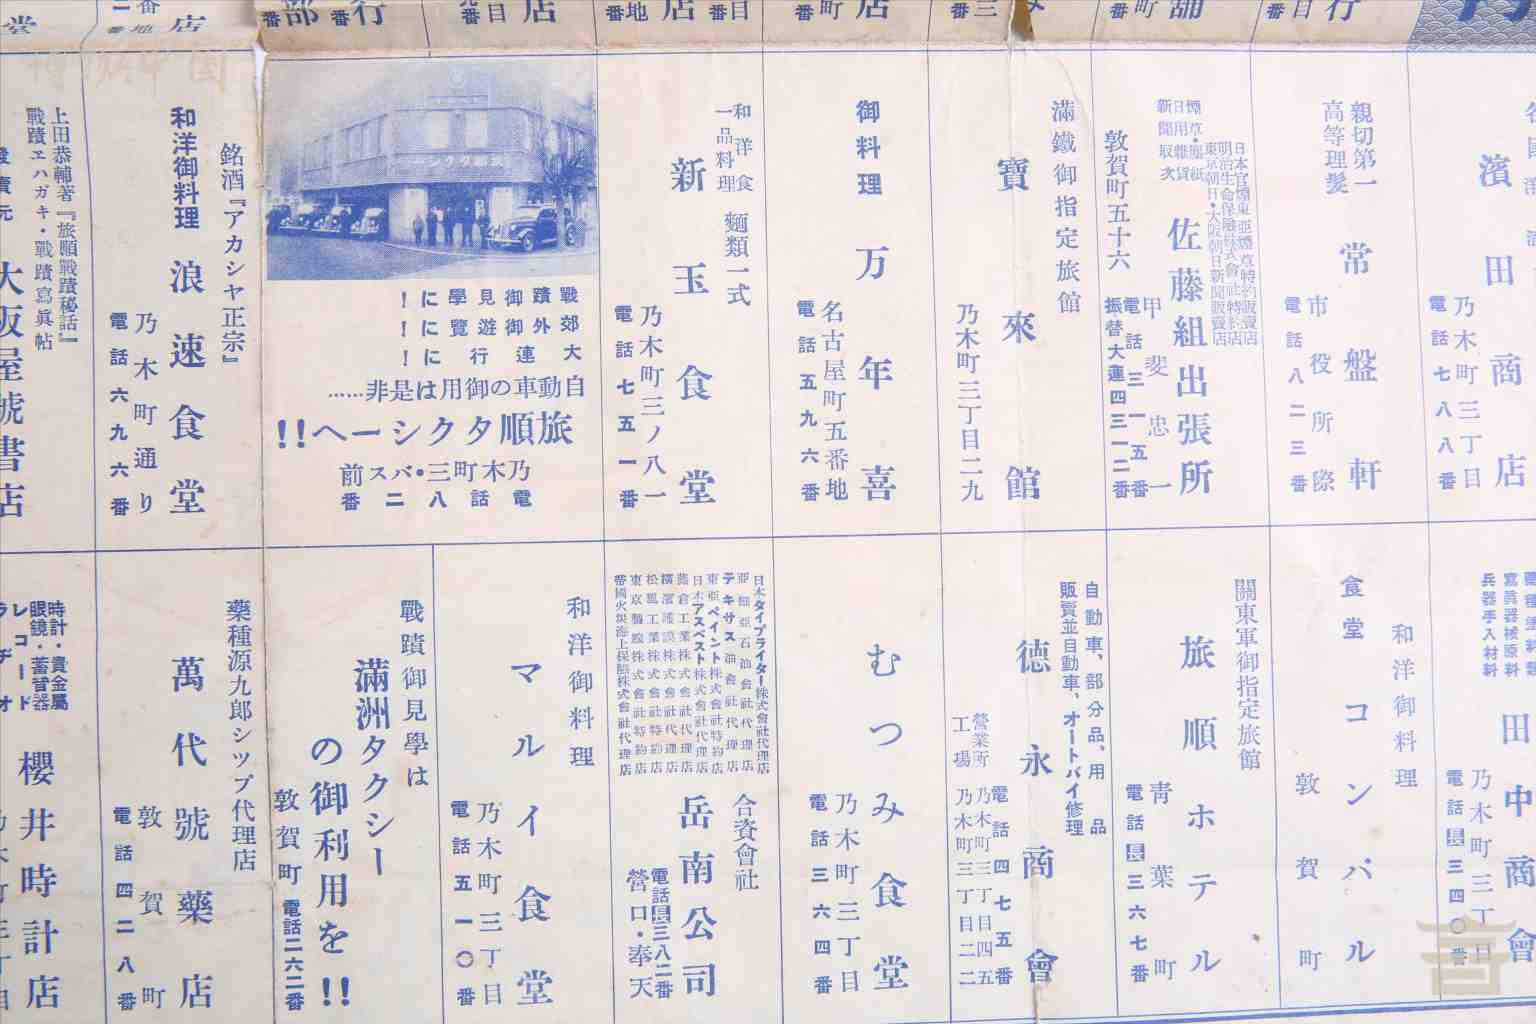 親切第一
高等理髪
常盤軒
市役所際
電話八二三番
煙草・塵紙
日用雑貨
新聞取次
日本官煙東亜煙草特約販賣店
明治生命保險株式會社特約店
東京朝日・大阪朝日新聞販賣店
佐藤組出張所
甲斐忠一
敦賀町五十六
電話三一五番
振替大連四三一二番
滿鐵御指定旅館
寶來館
乃木町三丁目二九
御料理
万年喜
名古屋町五番地
電話五九六番
和洋食
一品料理
麵類一式
新玉食堂
乃木町三ノ八一
電話七五一番
戰蹟御見學に!
郊外御遊覽に!
大連行に!
自動車の御用は是非……
旅順タクシーへ!!
乃木町三・バス前
電話八二番
銘酒『アカシヤ正宗』
和洋御料理
浪速食堂
乃木町通り
電話六九六番
上田恭輔著『旅順戰蹟秘話』
戰蹟エハガキ・戰蹟寫眞帖
大阪屋號書店
濱田商店
乃木町三丁目
電話七八八番
寫眞器械原料
兵器手入材料
田中商會
乃木町三丁目
電話長三四〇番
和洋御料理
食堂
コンパル
敦賀町
關東軍御指定旅館
旅順ホテル
青葉町
電話長三六七番
自動車、部分品、用品
販賣並自動車、オートバイ修理
德永商會
營業所 乃木町三丁目四五
電話四七五番
工場 乃木町三丁目二二
むつみ食堂
乃木町三丁目
電話三六四番
日本タイプライター株式會社代理店
亞細亞石油會社代理店
テキサス油會社代理店
東亞ペイント株式會社特約店
日本アスベスト株式會社代理店
藤倉工業株式會社代理店
橫濱護謨株式會社代理店
松風工業株式會社特約店
東京製線株式會社特約店
帝國火災海上保險株式會社代理店
合資會社
岳南公司
電話長三八二番
營口・奉天
和洋御料理
マルイ食堂
乃木町三丁目
電話五一〇番
戰蹟御見學は
滿洲タクシー
の御利用を!!
敦賀町 電話二六二番
藥種源九郎シツプ代理店
萬代號藥店
敦賀町
電話四二八番
時計・貴金屬
眼鏡・蓄音器
レコード
ラヂオ
櫻井時計店